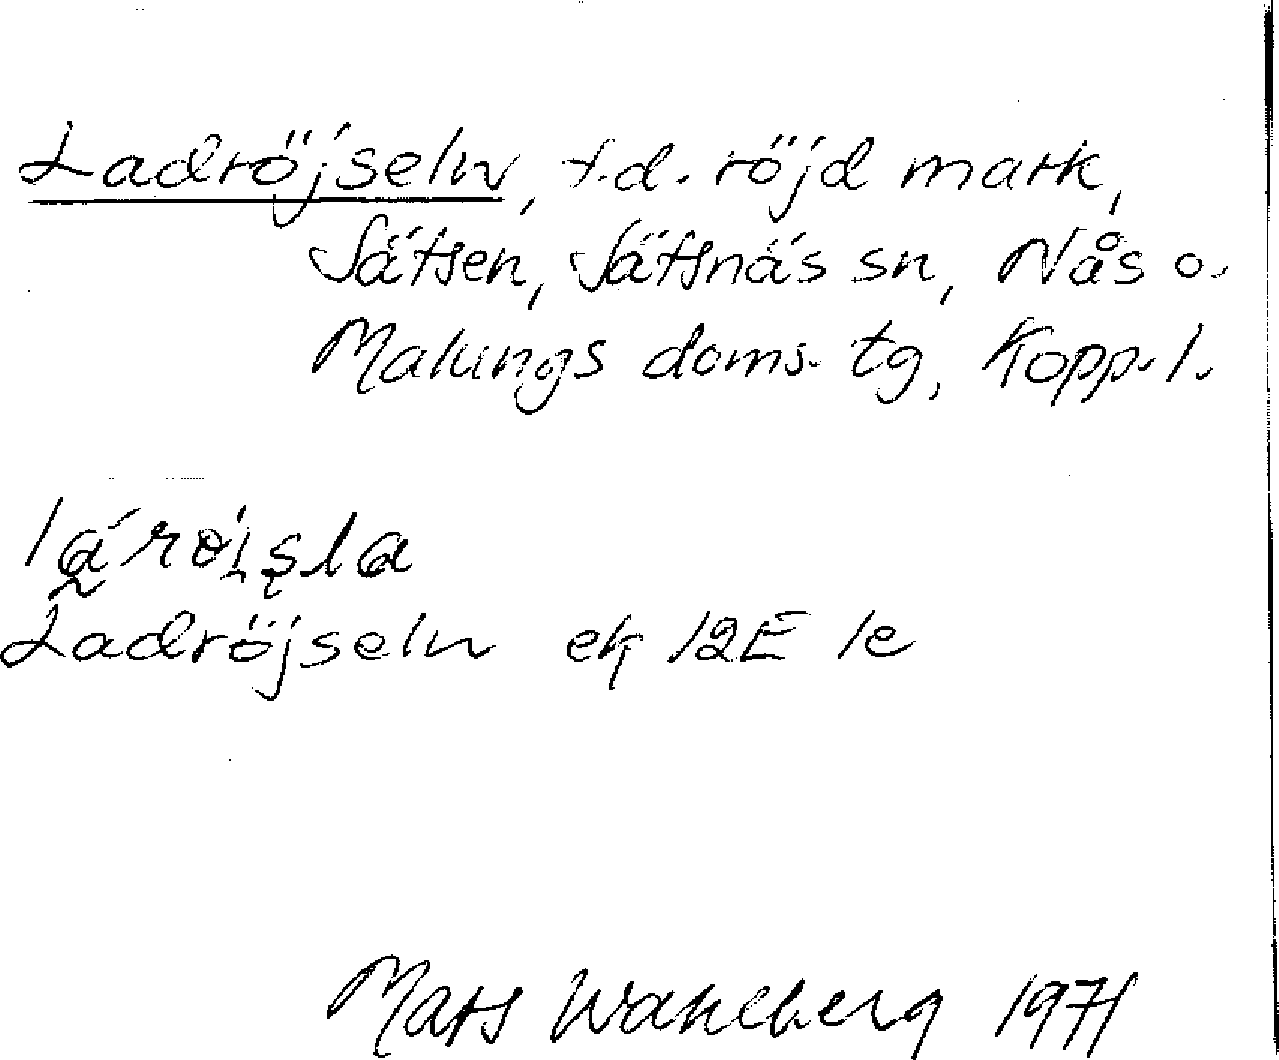 Ladröjseln, f.d. röjd mark,
Sätsen, Sätsnäs sn, Nås o.
Malungs doms. tg, Kopp. l.
Ladröjseln ek 12E 1e
Mats Wahlberg 1971